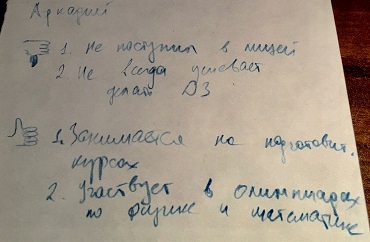 Аркадий
1. Не поступил в лицей
2. Не всегда успевает
делать ДЗ
1. Занимался на подготовит.
курсах
2. Участвует в олимпиадах
по физике и математике